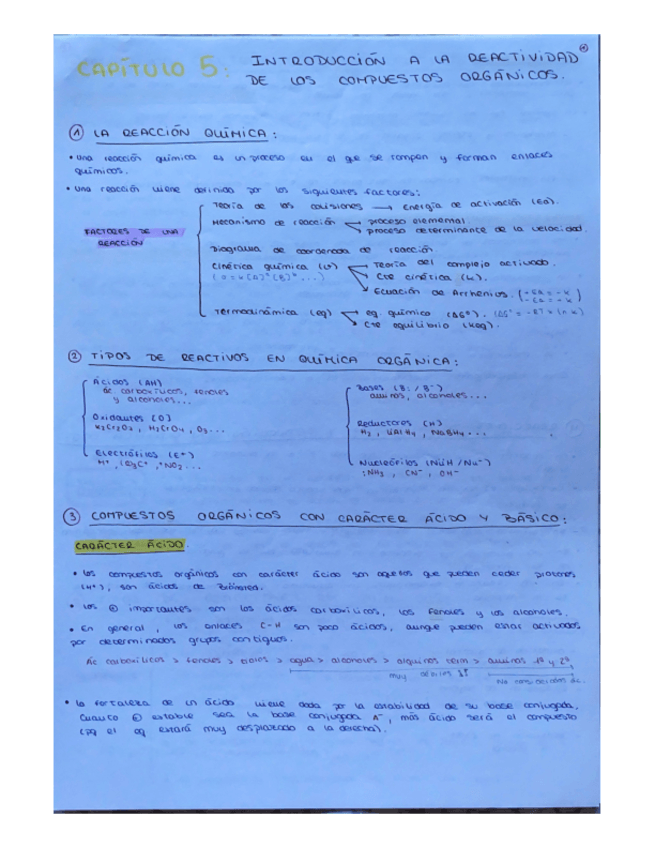 CAPÍTULO 5: INTRODUCCIÓN A LA REACTIVIDAD
DE LOS COMPUESTOS ORGÁNICOS.
① LA REACCIÓN QUÍMICA:
• una reacción química es un proceso en el que se rompen y forman enlaces
químicos.
• una reacción viene definida por los siguientes factores:
FACTORES DE UNA
REACCIÓN
Teoría de las colisiones → energía de activación (Ea).
Mecanismo de reacción
proceso elemental.
proceso determinante de la velocidad.
Diagrama de coordenada de reacción
Cinética química (v)
Teoría del complejo activado.
Cte cinética (k).
Ecuación de Arrhenius.
Termodinámica (eq)
eq. químico (ΔG°).
Cte equilibrio (Keq).
② TIPOS DE REACTIVOS EN QUÍMICA ORGÁNICA:
Ácidos (AH)
ác. carboxílicos, fenoles
y alcoholes...
Oxidantes [O]
H₂Cr₂O₇, H₂CrO₄, O₃...
Electrófilos (E⁺)
Bases (B: / B⁻)
aminas, alcoholes...
Reductores [H]
H₂, LiAlH₄, NaBH₄...
Nucleófilos (NuH / Nu⁻)
:NH₃, CN⁻, OH⁻
③ COMPUESTOS ORGÁNICOS CON CARÁCTER ÁCIDO Y BÁSICO:
CARÁCTER ÁCIDO.
• los compuestos orgánicos con carácter ácido son aquellos que pueden ceder protones
(H⁺), son ácidos de Brönsted.
• los ⊕ importantes son los ácidos carboxílicos, los fenoles y los alcoholes.
• En general, los enlaces C-H son poco ácidos, aunque pueden estar activados
por determinados grupos contiguos.
Ác carboxílicos > fenoles > tioles > agua > alcoholes > alquinos term > aminas 1ª y 2ª
muy débiles
No considerados ác.
• la fortaleza de un ácido viene dada por la estabilidad de su base conjugada,
cuanto ⊕ estable sea la base conjugada A⁻, más ácido será el compuesto
(pq el eq estará muy desplazado a la derecha).